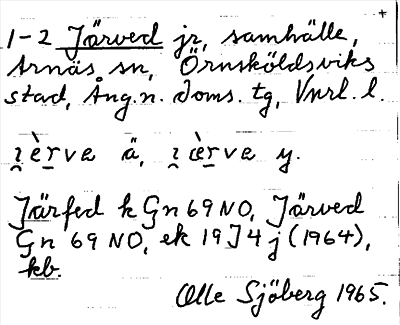 1-2 Järved jr, samhälle,
Arnäs sn, Örnsköldsviks
stad, Ång.n. doms. tg, Vnrl. l.
ı̯èr̲va ä, ı̯ æ̀r̲va y.
Järfed k Gn 69 NO, Järved
Gn 69 NO, ek 19J4j (1964),
kb.
Olle Sjöberg 1965.